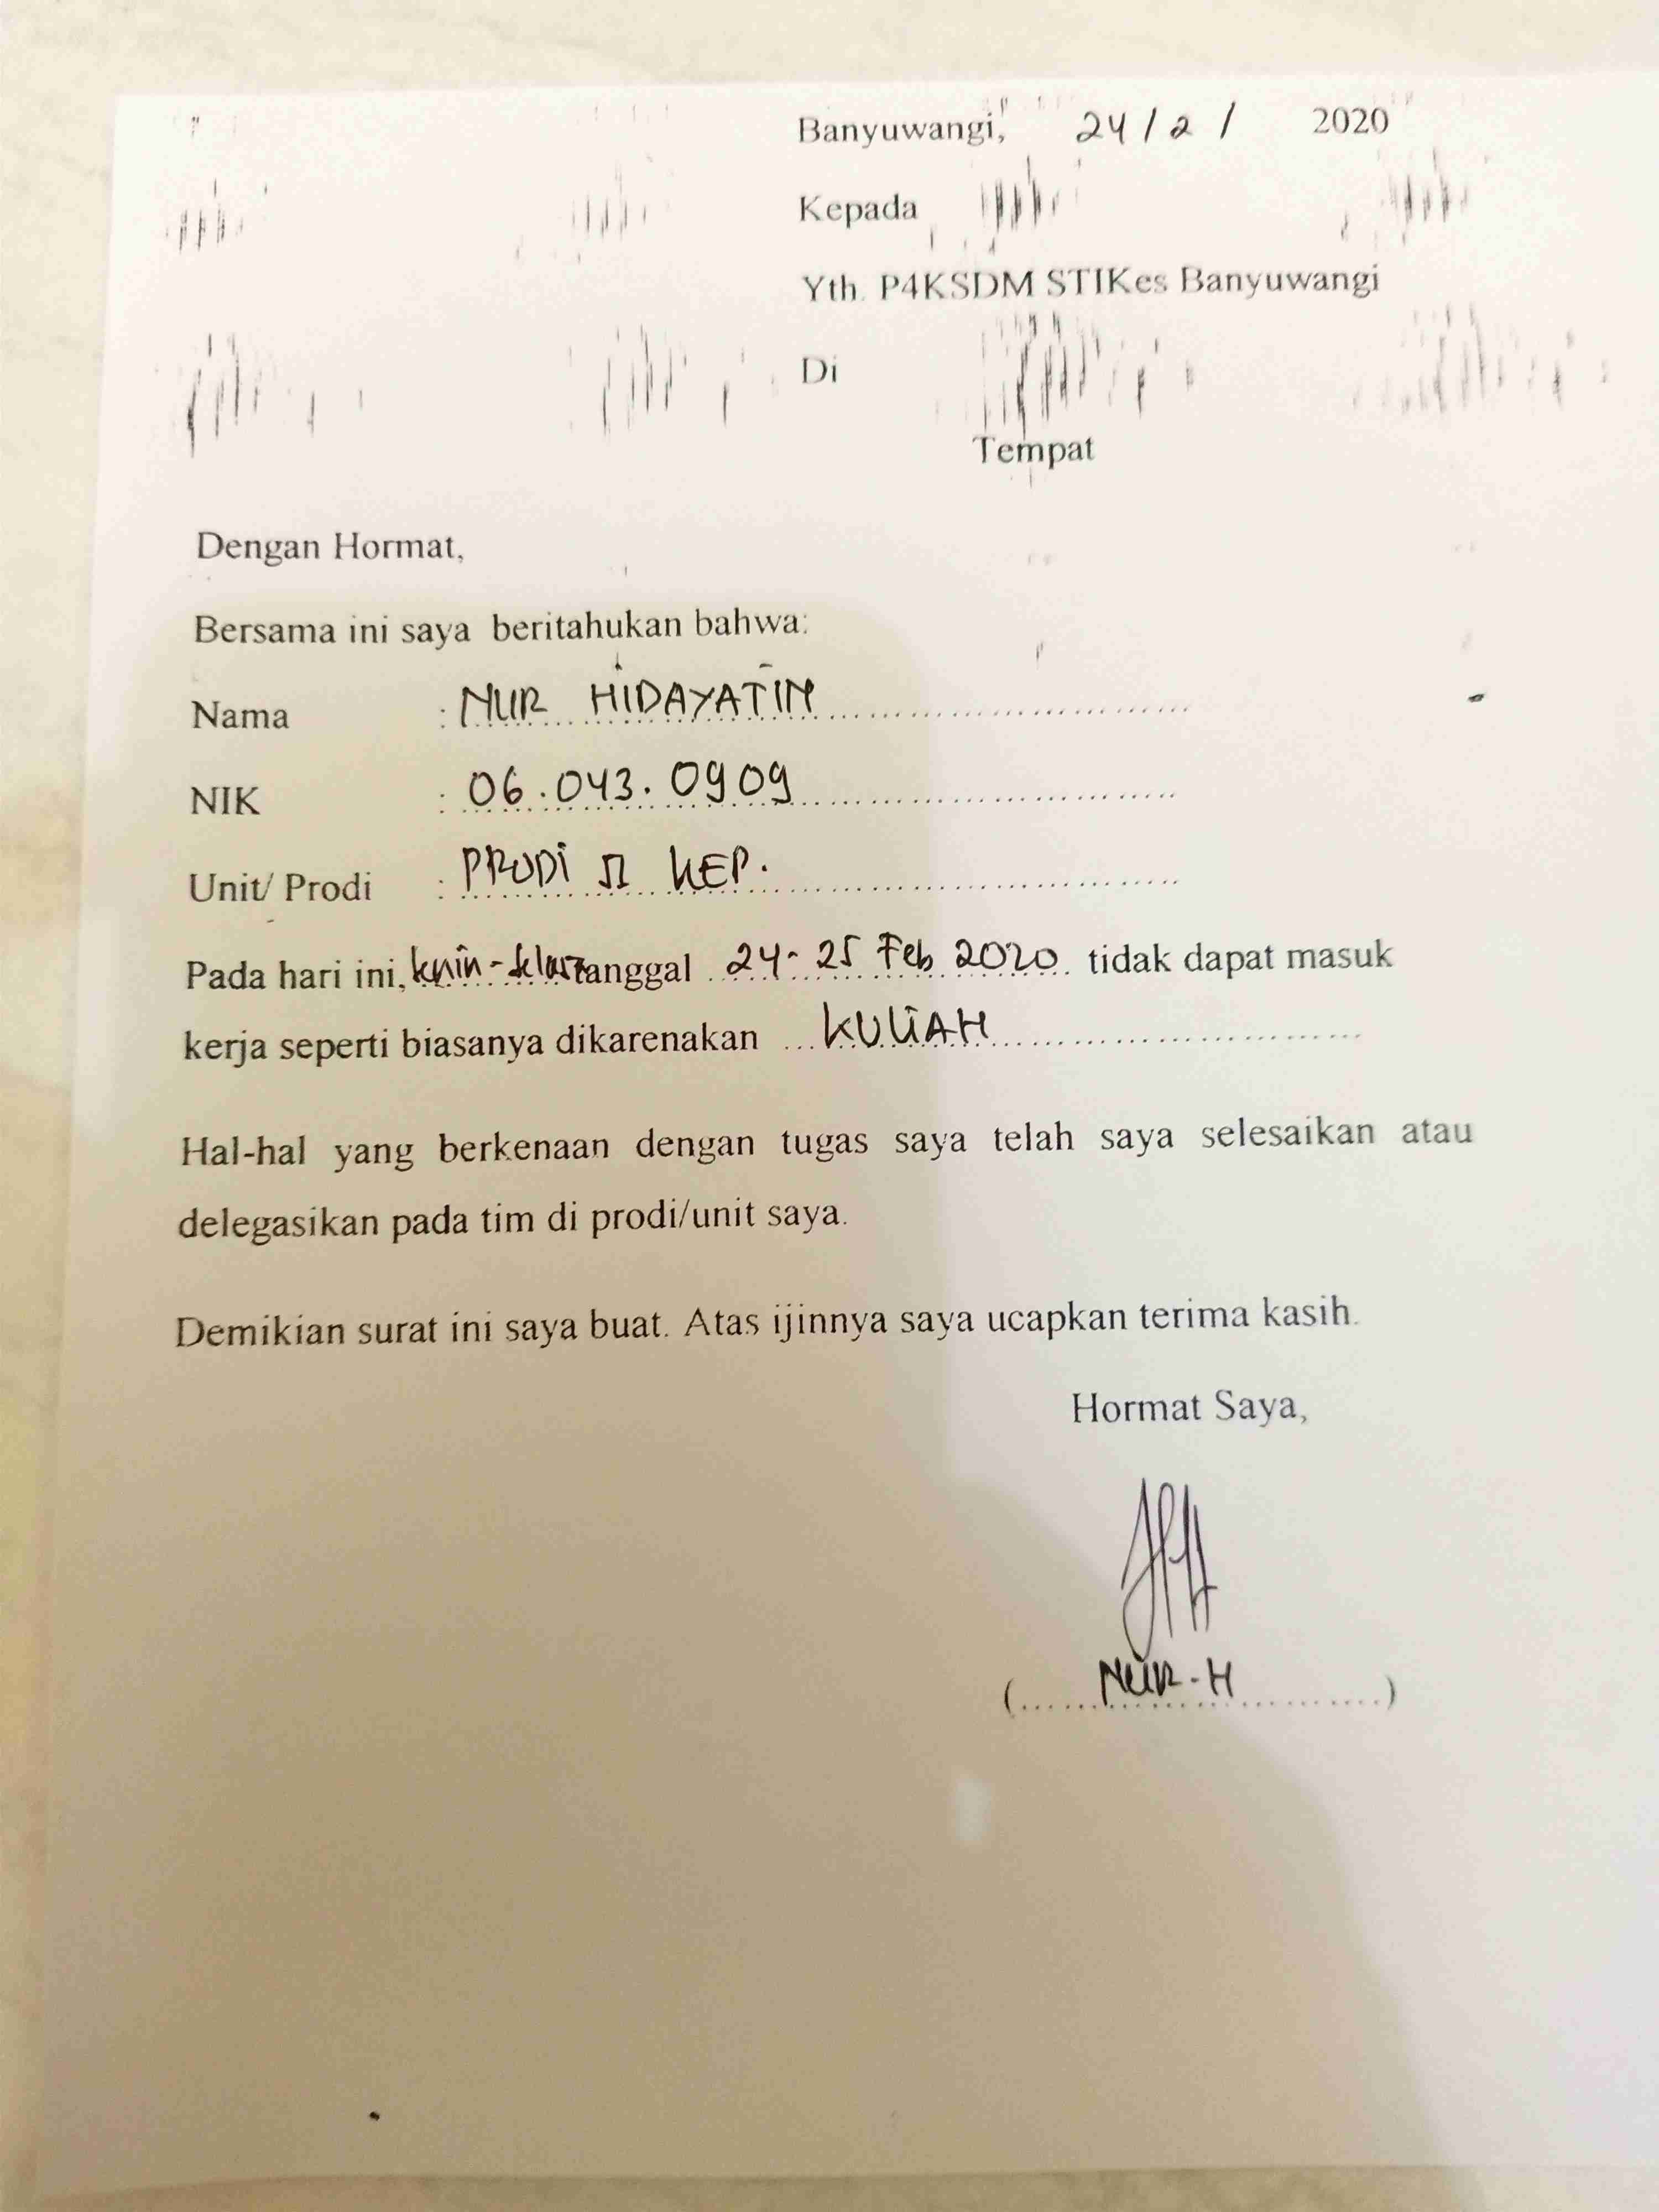 Banyuwangi, 24/2/ 2020
Kepada
Yth. P4KSDM STIKes Banyuwangi
Di
Tempat
Dengan Hormat,
Bersama ini saya beritahukan bahwa:
Nama : NUR HIDAYATIN
NIK : 06.043.0909
Unit/ Prodi : PRODI KEP.
Pada hari ini, tanggal 24-25 Feb 2020 tidak dapat masuk
kerja seperti biasanya dikarenakan KULIAH
Hal-hal yang berkenaan dengan tugas saya telah saya selesaikan atau
delegasikan pada tim di prodi/unit saya.
Demikian surat ini saya buat. Atas ijinnya saya ucapkan terima kasih.
Hormat Saya,
(......NUR-H............)